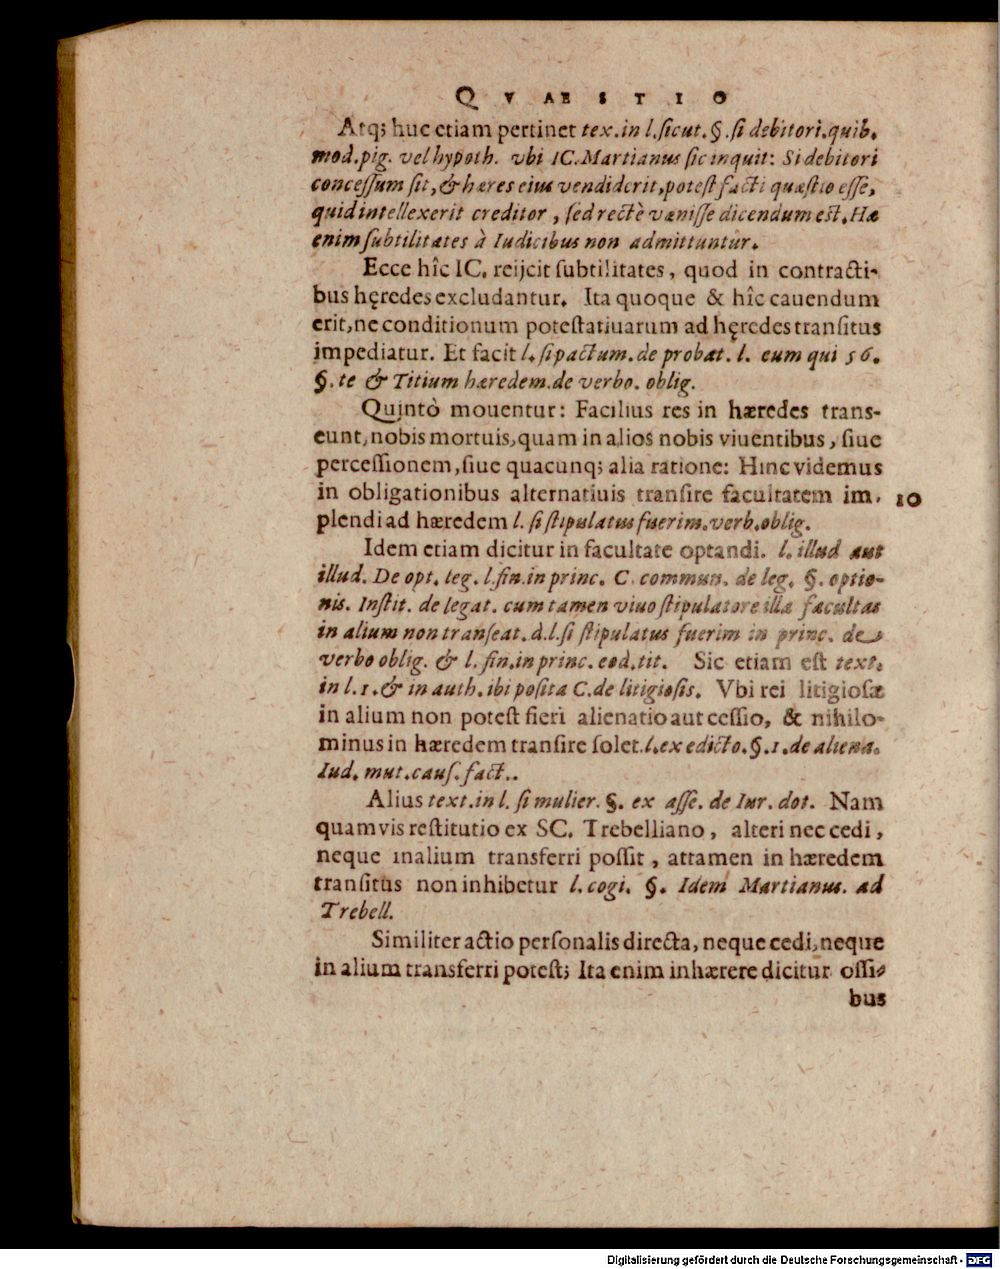 QVAESTIO
Atq; huc etiam pertinet tex. in l. ſicut. §. ſi debitori. quib.
mod. pig. vel hypoth. vbi IC. Martianus ſic inquit: Si debitori
conceſſum ſit, & hæres eius vendiderit, poteſt facti quæſtio eſſe,
quid intellexerit creditor, ſed rectè vænïſſe dicendum eſt. Hæ
enim ſubtilitates à Iudicibus non admittuntur.
Ecce hîc IC. reijcit ſubtilitates, quod in contracti-
bus hęredes excludantur. Ita quoque & hîc cauendum
erit, ne conditionum poteſtatiuarum ad hęredes tranſitus
impediatur. Et facit l. ſi pactum. de probat. l. eum qui 56.
§. te & Titium hæredem. de verbo. oblig.
Quintò mouentur: Facilius res in hæredes trans-
eunt, nobis mortuis, quam in alios nobis viuentibus, ſiue
per ceſſionem, ſiue quacunq; alia ratione: Hinc videmus
in obligationibus alternatiuis tranſire facultatem im- 10
plendi ad hæredem l. ſi ſtipulatus fuerim. verb. oblig.
Idem etiam dicitur in facultate optandi. l. illud aut
illud. De opt. leg. l. fin. in princ. C. commun. de leg. §. optio-
nis. Inſtit. de legat. cum tamen viuo ſtipulatore illa facultas
in alium non tranſeat. d. l. ſi ſtipulatus fuerim in princ. de
verbo oblig. & l. fin. in princ. eod. tit. Sic etiam eſt text.
in l. 1. & in auth. ibi poſita C. de litigioſis. Vbi rei litigioſæ
in alium non poteſt fieri alienatio aut ceſſio, & nihilo-
minus in hæredem tranſire ſolet. l. ex edicto. §. 1. de aliena.
Iud. mut. cauſ. fact..
Alius text. in l. ſi mulier. §. ex aſſe. de Iur. dot. Nam
quamvis reſtitutio ex SC. Trebelliano, alteri nec cedi,
neque in alium transferri poſſit, attamen in hæredem
tranſitus non inhibetur l. cogi. §. Idem Martianus. ad
Trebell.
Similiter actio perſonalis directa, neque cedi, neque
in alium transferri poteſt; Ita enim inhærere dicitur oſſi-
bus
Digitalisierung gefördert durch die Deutsche Forschungsgemeinschaft - DFG